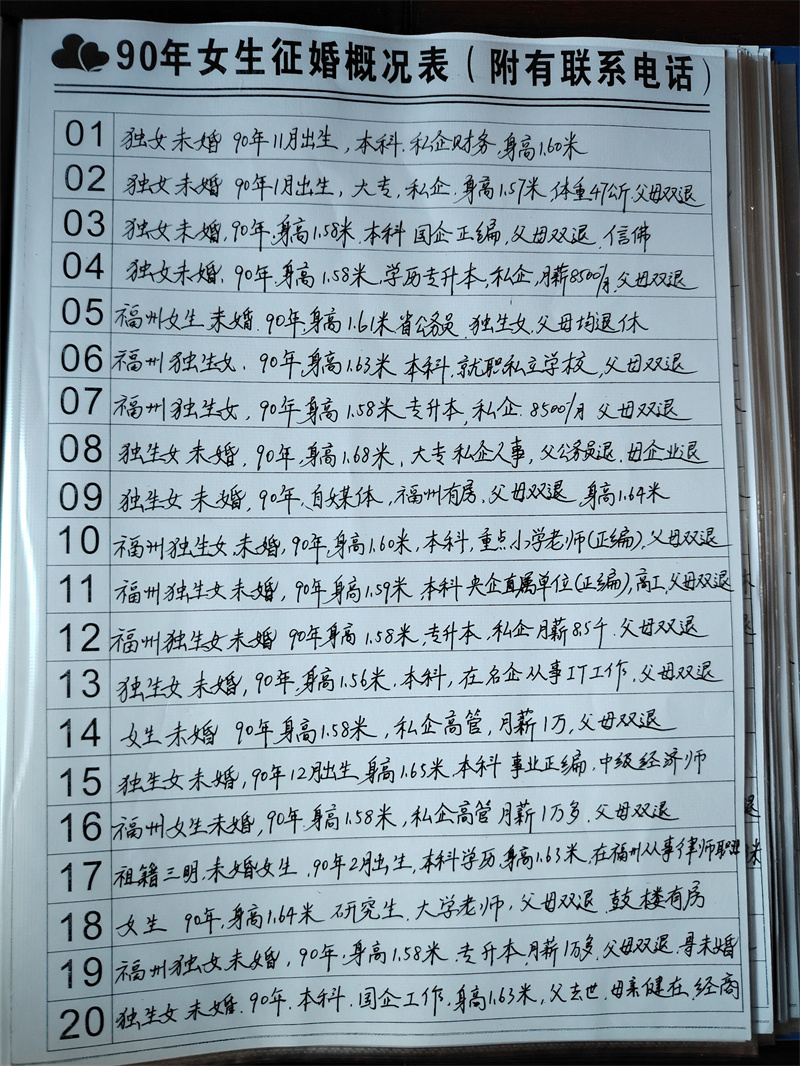 90年女生征婚概况表（附有联系电话）
01 独女未婚 90年11月出生，本科.私企财务.身高1.60米
02 独女未婚 90年1月出生，大专，私企.身高1.57米.体重47公斤.父母双退
03 独女未婚，90年，身高1.58米.本科 国企正编，父母双退.信佛
04 独女未婚，90年，身高1.58米，学历专升本，私企，月薪8500/月，父母双退
05 福州女生未婚.90年，身高1.61米省公务员.独生女.父母均退休
06 福州独生女.90年，身高1.63米 本科，就职私立学校，父母双退
07 福州独生女，90年，身高1.58米，专升本，私企.8500/月 父母双退
08 独生女未婚，90年，身高1.68米，大专私企人事，父公务员退.母企业退
09 独生女未婚，90年，自媒体，福州有房，父母双退 身高1.64米
10 福州独生女.未婚，90年，身高1.60米，本科，重点小学老师(正编)，父母双退
11 福州独生女未婚，90年，身高1.59米.本科央企直属单位(正编)，高工，父母双退
12 福州独生女未婚 90年身高1.58米，专升本，私企月薪8.5千.父母双退
13 独生女未婚，90年，身高1.56米.本科，在名企从事IT工作，父母双退
14 女生未婚 90年，身高1.58米，私企高管，月薪1万，父母双退
15 独生女未婚，90年12月出生，身高1.65米，本科 事业正编，中级经济师
16 福州女生未婚，90年，身高1.58米，私企高管 月薪1万多.父母双退
17 祖籍三明，未婚女生，90年2月出生，本科学历，身高1.63米，在福州从事律师职业
18 女生 90年，身高1.64米 研究生.大学老师，父母双退.鼓楼有房
19 福州独女未婚，90年，身高1.58米.专升本，月薪1万多，父母双退.寻未婚
20 独生女未婚.90年.本科.国企工作，身高1.63米，父去世.母亲健在.经商